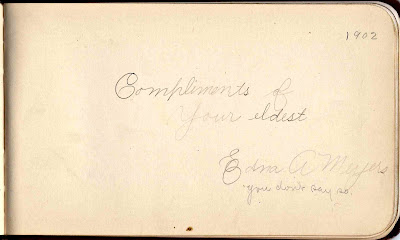 1902
Compliments of
Your eldest
Edna A Meyers
you don't say so.